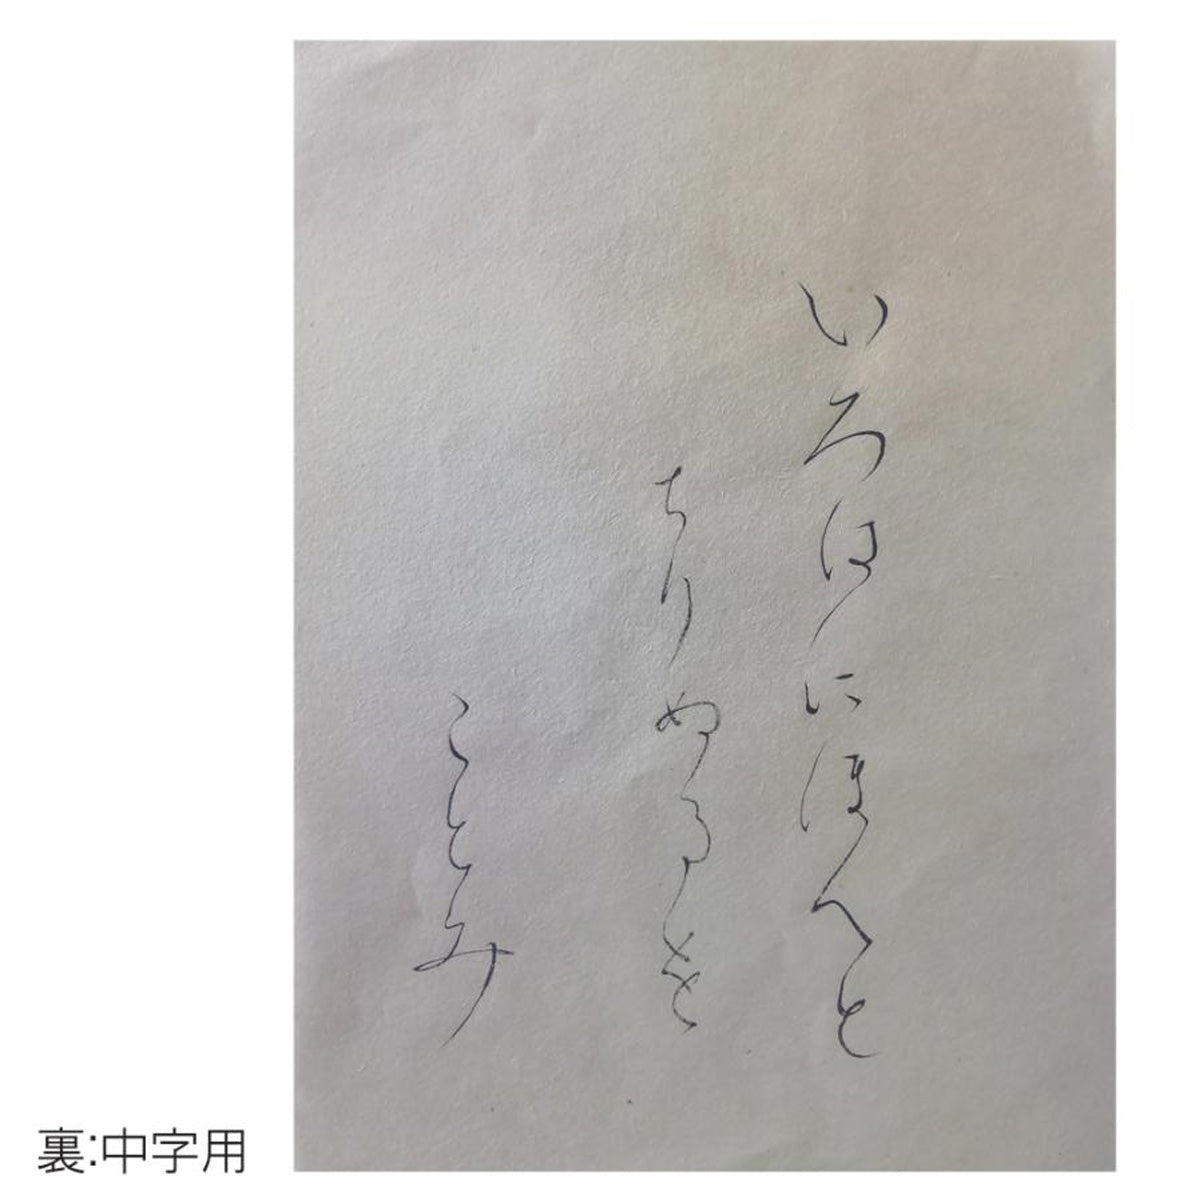 いろはにほへと
ちりぬるを
ことみ
裏:中字用